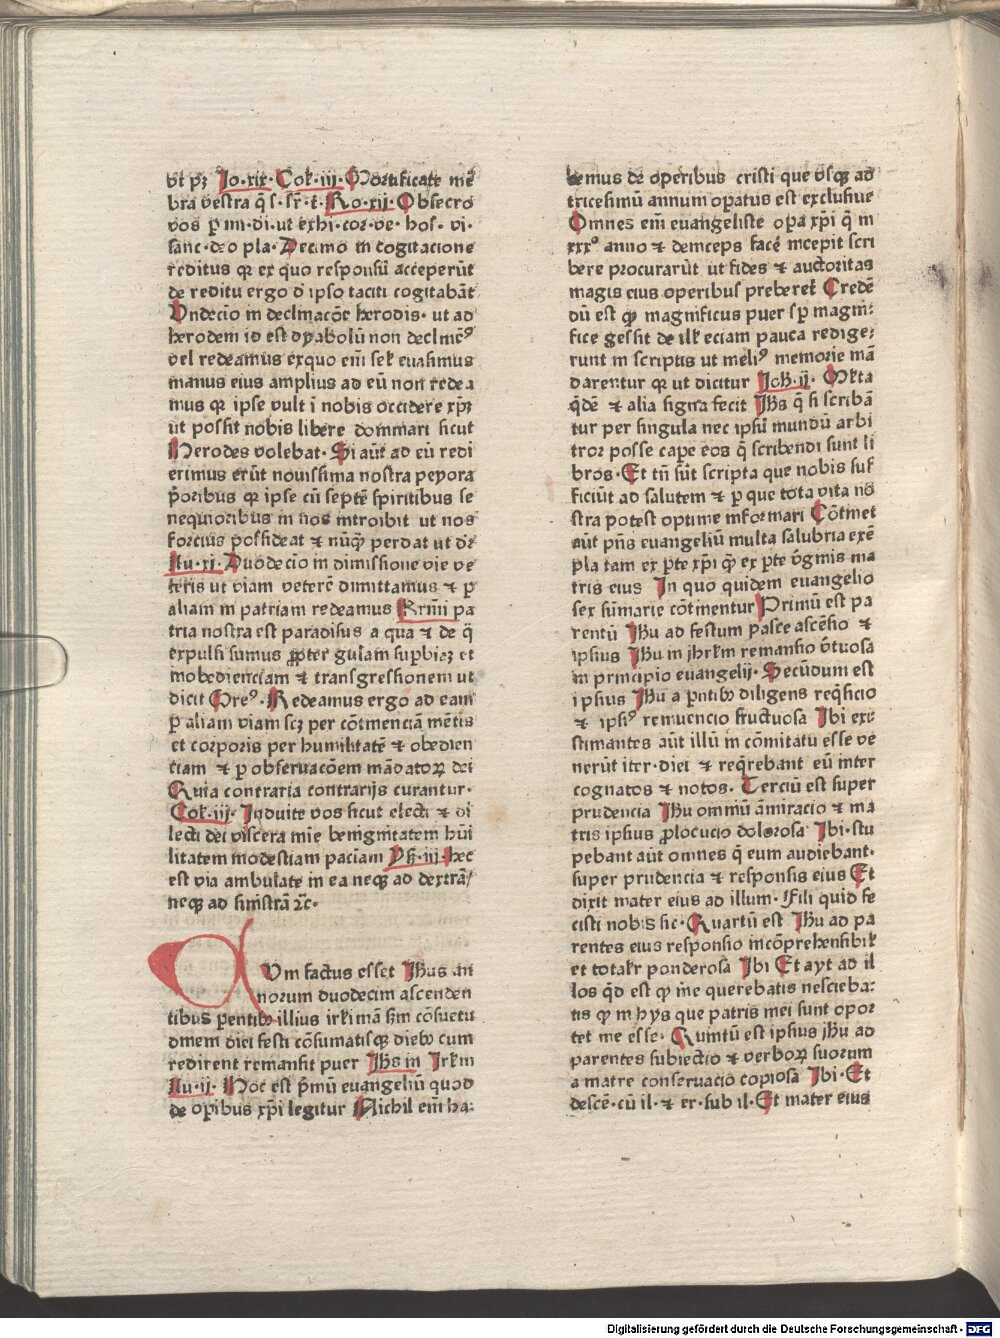 vt pꝫ Io·xix· Col̃·iij· Mortificate mē
bra vestra q̄ s· sr̄·t̄· Ro·xij· Obsecro
vos ꝑ mi·di·ut exhi·cor·ve·hos·vi·
sanc·deo pla· Decimo in cogitacione
reditus qꝛ ex quo responsū acceperūt
de reditu ergo d̄ ipso taciti cogitabāt
Undecīo in declinacōe herodis· ut ad
herodem id est dyabolū non declinē⁹
vel redeamus exquo em̄ sel̃ euasimus
manus eius amplius ad eū non redea
mus qꝛ ipse vult ī nobis occidere xp̄ꝫ
ut possit nobis libere dominari sicut
Herodes volebat· Si aūt ad eū redi
erimus erūt nouissima nostra peyora
p̄oribus qꝛ ipse cū septē spiritibus se
nequioribus in nos introibit ut nos
forcius possideat ⁊ nūq̄ perdat ut dr̄
Lu·xi· Duodecīo in dimissione vie ve
teris ut viam veterē dimittamus ⁊ ꝑ
aliam in patriam redeamus Krm̄i pa
tria nostra est paradisus a qua ⁊ de q̄
expulsi sumus ꝓpter gulam suꝑbiaꝫ et
inobedienciam ⁊ transgressionem ut
dicit Gre⁹· Redeamus ergo ad eam
ꝑ aliam viam scꝫ per cōtinenciā mētis
et corporis per humilitatē ⁊ obedien
ciam ⁊ ꝑ obseruacōem mādatoꝝ dei
Quia contraria contrarijs curantur·
Col̃·iij· Induite vos sicut electi ⁊ di
lecti dei viscera mīe benignitatem hūi
litatem modestiam paciam Ys̄·iij· hec
est via ambulate in ea neqꝫ ad dextrā/
neqꝫ ad sinistrā ⁊c̄·
CVm factus esset Ihus an
norum duodecim ascenden
tibus ꝑentibꝫ illius irl̃imā sm̄ cōsuetu
dinem diei festi cōsumatisqꝫ diebꝫ cum
redirent remansit puer Ihs in Irl̃m
Lu·ij· Hoc est p̄mū euangeliū quod
de oꝑibus xp̄i legitur Nichil em̄ ha:
bemus de operibus cristi que vsqꝫ ad
tricesimū annum oꝑatus est exclusiue
Omnes em̄ euangeliste oꝑa xp̄i q̄ in
xxx° anno ⁊ deinceps facē incepit scri
bere procurarūt ut fides ⁊ auctoritas
magis eius operibus preberet̄ Credē
dū est ꝙ magnificus puer sꝑ magni:
fice gessit de ill̃ eciam pauca redige:
runt in scriptis ut meli⁹ memorie mā
darentur qꝛ ut dicitur Ioh̄·ij· Ml̃ta
q̄dē ⁊ alia signa fecit Ihs q̄ si scribā
tur per singula nec ipsū mundū arbi
tror posse caꝑe eos q̄ scribendi sunt li
bros· Et tn̄ sūt scripta que nobis suf
ficiūt ad salutem ⁊ ꝑ que tota vita no
stra potest optime informari Cōtinet
aūt pn̄s euangeliū multa salubria exē
pla tam ex ꝑte xp̄i ꝙ ex ꝑte v̄ginis ma
tris eius In quo quidem euangelio
sex sūmarie cōtinentur Primū est pa
rentū Ihu ad festum pasce ascēsio ⁊
ipsius Ihu in ihrl̃m remansio v̄tuosa
in principio euangelij· Secūdum est
ipsius Ihu a ꝑentibꝫ diligens reqͥsicio
⁊ ipsi⁹ reinuencio fructuosa Ibi exi:
stimantes aūt illū in cōmitatu esse ve
nerūt iter·diei ⁊ reqͥrebant eū inter
cognatos ⁊ notos· Terciū est super
prudencia Ihu omniū āmiracio ⁊ ma
tris ipsius ꝓlocucio dolorosa Ibi·stu
pebant aūt omnes q̄ eum audiebant·
super prudencia ⁊ responsis eius Et
dixit mater eius ad illum· Fili quid fe
cisti nobis sic· Quartū est Ihu ad pa
rentes eius responsio incōprehensibil̃
et totalr̄ ponderosa Ibi Et ayt ad il
los q̄d est ꝙ me querebatis nescieba:
tis ꝙ in hys que patris mei sunt opor
tet me esse· Quintū est ipsius ihu ad
parentes subiectio ⁊ verboꝝ suorum
a matre conseruacio copiosa Ibi· Et
descē·cū il·⁊ er·sub il· Et mater eius
Digitalisierung gefördert durch die Deutsche Forschungsgemeinschaft · DFG